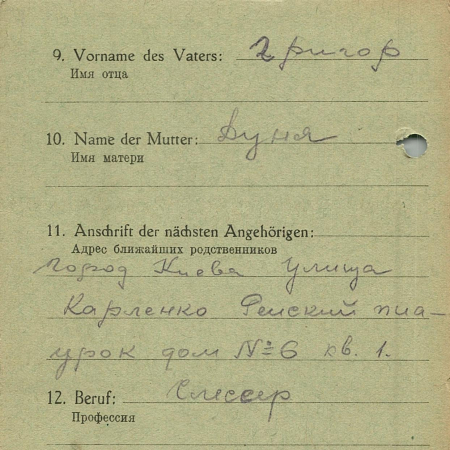 9. Vorname des Vaters: Григор
Имя отца
10. Name der Mutter: Дуня
Имя матери
11. Anschrift der nächsten Angehörigen:
Адрес ближайших родственников
город Киева Улица
Карленко
дом № 6 кв. 1.
12. Beruf: Слесер
Профессия